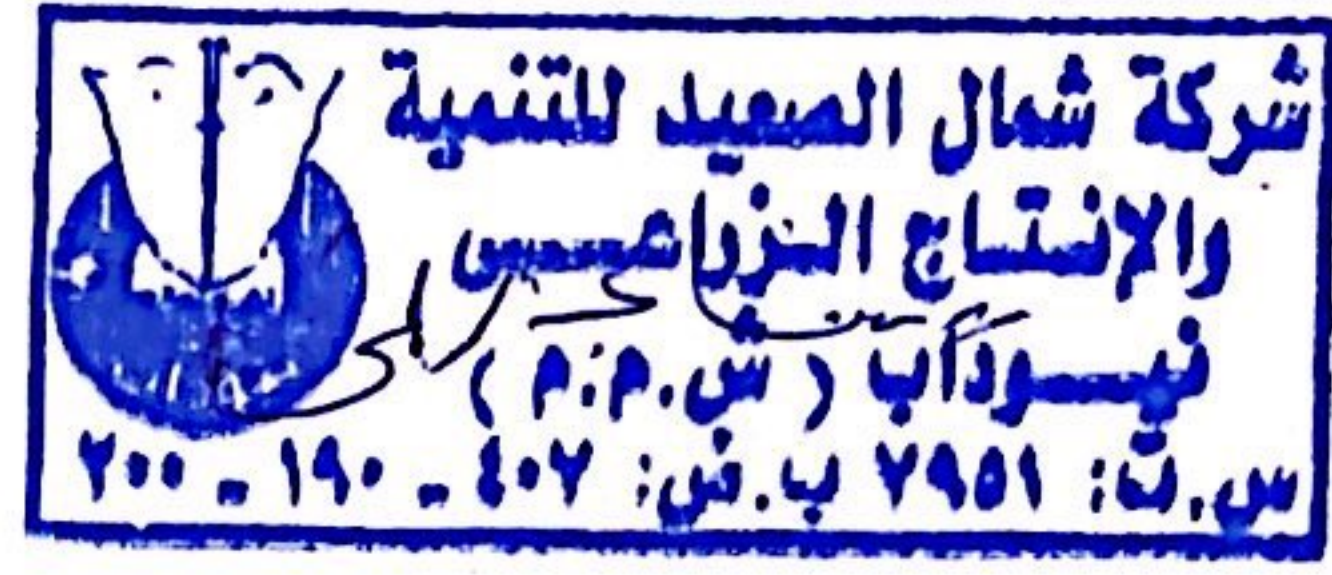 شركة شمال الصعيد للتنمية
والإنتاج الزراعى
نيوداب (ش.م.م)
س.ت: ٧٩٥١ ب.ض: ٤٠٧ - ١٩٠ - ٢٠٠